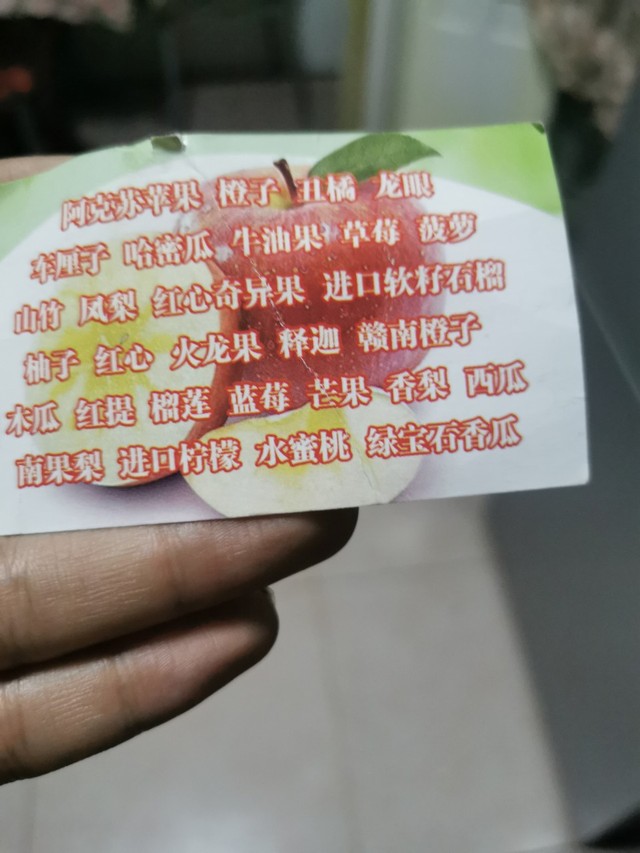 阿克苏苹果 橙子 丑橘 龙眼
车厘子 哈密瓜 牛油果 草莓 菠萝
山竹 凤梨 红心奇异果 进口软籽石榴
柚子 红心 火龙果 释迦 赣南橙子
木瓜 红提 榴莲 蓝莓 芒果 香梨 西瓜
南果梨 进口柠檬 水蜜桃 绿宝石香瓜